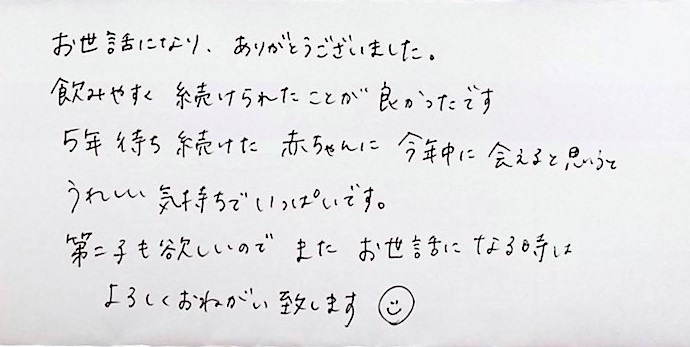 お世話になり、ありがとうございました。
飲みやすく 続けられたことが 良かったです
5年 待ち 続けた 赤ちゃんに 今年中に 会えると思うと
うれしい 気持ちで いっぱいです。
第二子も欲しいので また お世話に なる時は
よろしくおねがい 致します